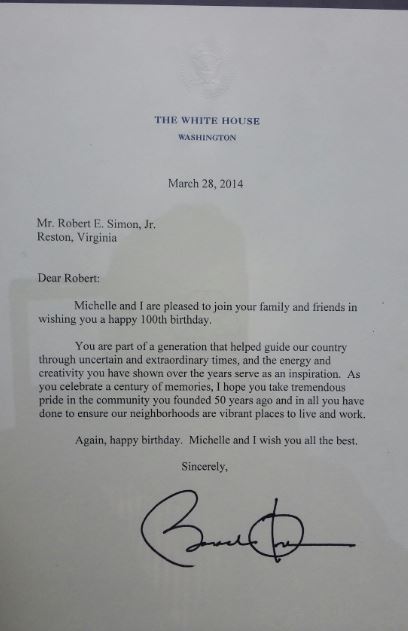 THE WHITE HOUSE
WASHINGTON
March 28, 2014
Mr. Robert E. Simon, Jr.
Reston, Virginia
Dear Robert:
Michelle and I are pleased to join your family and friends in
wishing you a happy 100th birthday.
You are part of a generation that helped guide our country
through uncertain and extraordinary times, and the energy and
creativity you have shown over the years serve as an inspiration. As
you celebrate a century of memories, I hope you take tremendous
pride in the community you founded 50 years ago and in all you have
done to ensure our neighborhoods are vibrant places to live and work.
Again, happy birthday. Michelle and I wish you all the best.
Sincerely,